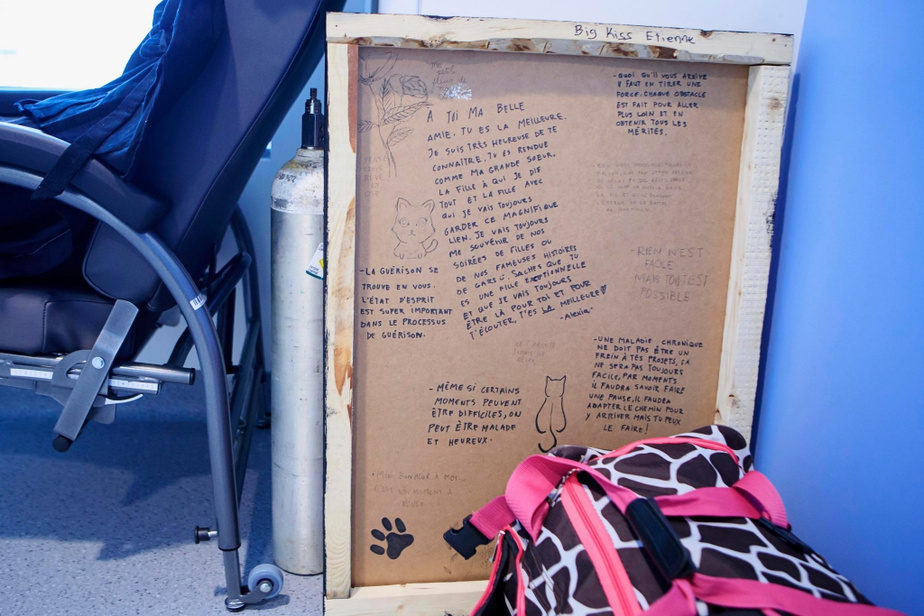 Big Kiss Etienne
À TOI MA BELLE
AMIE. TU ES LA MEILLEURE.
JE SUIS TRÈS HEUREUSE DE TE
CONNAÎTRE. TU ES RENDUE
COMME MA GRANDE SOEUR.
LA FILLE À QUI JE DIS
TOUT ET LA FILLE AVEC
QUI JE VAIS TOUJOURS
GARDER CE MAGNIFIQUE
LIEN. JE VAIS TOUJOURS
ME SOUVENIR DE NOS
SOIRÉES DE FILLES OU
DE NOS FAMEUSES HISTOIRES
DE GARS. SACHES QUE TU
ES UNE FILLE EXCEPTIONNELLE
ET QUE JE VAIS TOUJOURS
ÊTRE LÀ POUR TOI ET POUR
T'ÉCOUTER. T'ES LA MEILLEURE
- Alexia -
- QUOI QU'IL VOUS ARRIVE
IL FAUT EN TIRER UNE
FORCE. CHAQUE OBSTACLE
EST FAIT POUR ALLER
PLUS LOIN ET EN
OBTENIR TOUS LES
MÉRITES.
- RIEN N'EST
FACILE
MAIS TOUT EST
POSSIBLE
- LA GUÉRISON SE
TROUVE EN VOUS.
L'ÉTAT D'ESPRIT
EST SUPER IMPORTANT
DANS LE PROCESSUS
DE GUÉRISON.
- UNE MALADIE CHRONIQUE
NE DOIT PAS ÊTRE UN
FREIN À TES PROJETS, ÇA
NE SERA PAS TOUJOURS
FACILE, PAR MOMENTS
IL FAUDRA SAVOIR FAIRE
UNE PAUSE, IL FAUDRA
ADAPTER LE CHEMIN POUR
Y ARRIVER MAIS TU PEUX
LE FAIRE!
- MÊME SI CERTAINS
MOMENTS PEUVENT
ÊTRE DIFFICILES, ON
PEUT ÊTRE MALADE
ET HEUREUX.